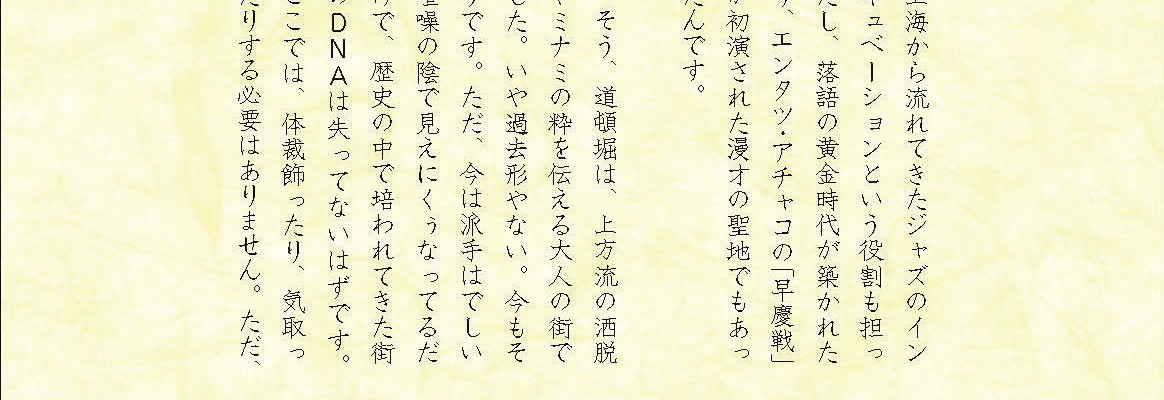 海から流れてきたジャズのイン
ュベーションという役割も担っ
し、落語の黄金時代が築かれた
、エンタツ・アチャコの「早慶戦」
初演された漫才の聖地でもあっ
んです。
そう、道頓堀は、上方流の洒脱
ミナミの粋を伝える大人の街で
した。いや過去形やない。今もそ
です。ただ、今は派手はでしい
噪の陰で見えにくぅなってるだ
で、歴史の中で培われてきた街
DNAは失ってないはずです。
こでは、体裁飾ったり、気取っ
りする必要はありません。ただ、